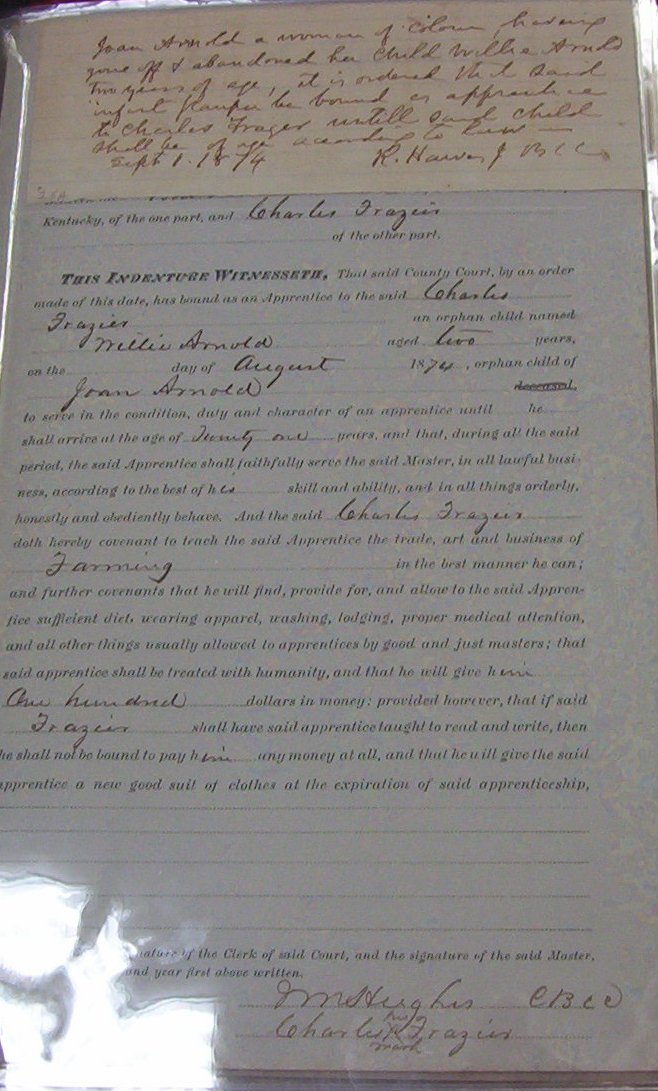 Joan Arnold a woman of Colour, having
gone off & abandoned her Child Willie Arnold
two years of age, it is ordered that said
infant pauper be bound as apprentice
to Charles Frazer untill said child
shall be of age according to law —
Sept 1. 1874 R. Hawes J B C C
Kentucky, of the one part, and Charles Frazier
of the other part.
THIS INDENTURE WITNESSETH, That said County Court, by an order
made of this date, has bound as an Apprentice to the said Charles
Frazier an orphan child named
Willie Arnold aged two years,
on the day of August 1874, orphan child of
Joan Arnold deceased,
to serve in the condition, duty and character of an apprentice until he
shall arrive at the age of Twenty one years, and that, during all the said
period, the said Apprentice shall faithfully serve the said Master, in all lawful busi-
ness, according to the best of his skill and ability, and in all things orderly,
honestly and obediently behave. And the said Charles Frazier
doth hereby covenant to teach the said Apprentice the trade, art and business of
Farming in the best manner he can;
and further covenants that he will find, provide for, and allow to the said Appren-
tice sufficient diet, wearing apparel, washing, lodging, proper medical attention,
and all other things usually allowed to apprentices by good and just masters; that
said apprentice shall be treated with humanity, and that he will give him
One hundred dollars in money: provided however, that if said
Frazier shall have said apprentice taught to read and write, then
he shall not be bound to pay him any money at all, and that he will give the said
apprentice a new good suit of clothes at the expiration of said apprenticeship,
of the Clerk of said Court, and the signature of the said Master,
and year first above written.
JM Hughes C B C C
his
Charles X Frazier
mark